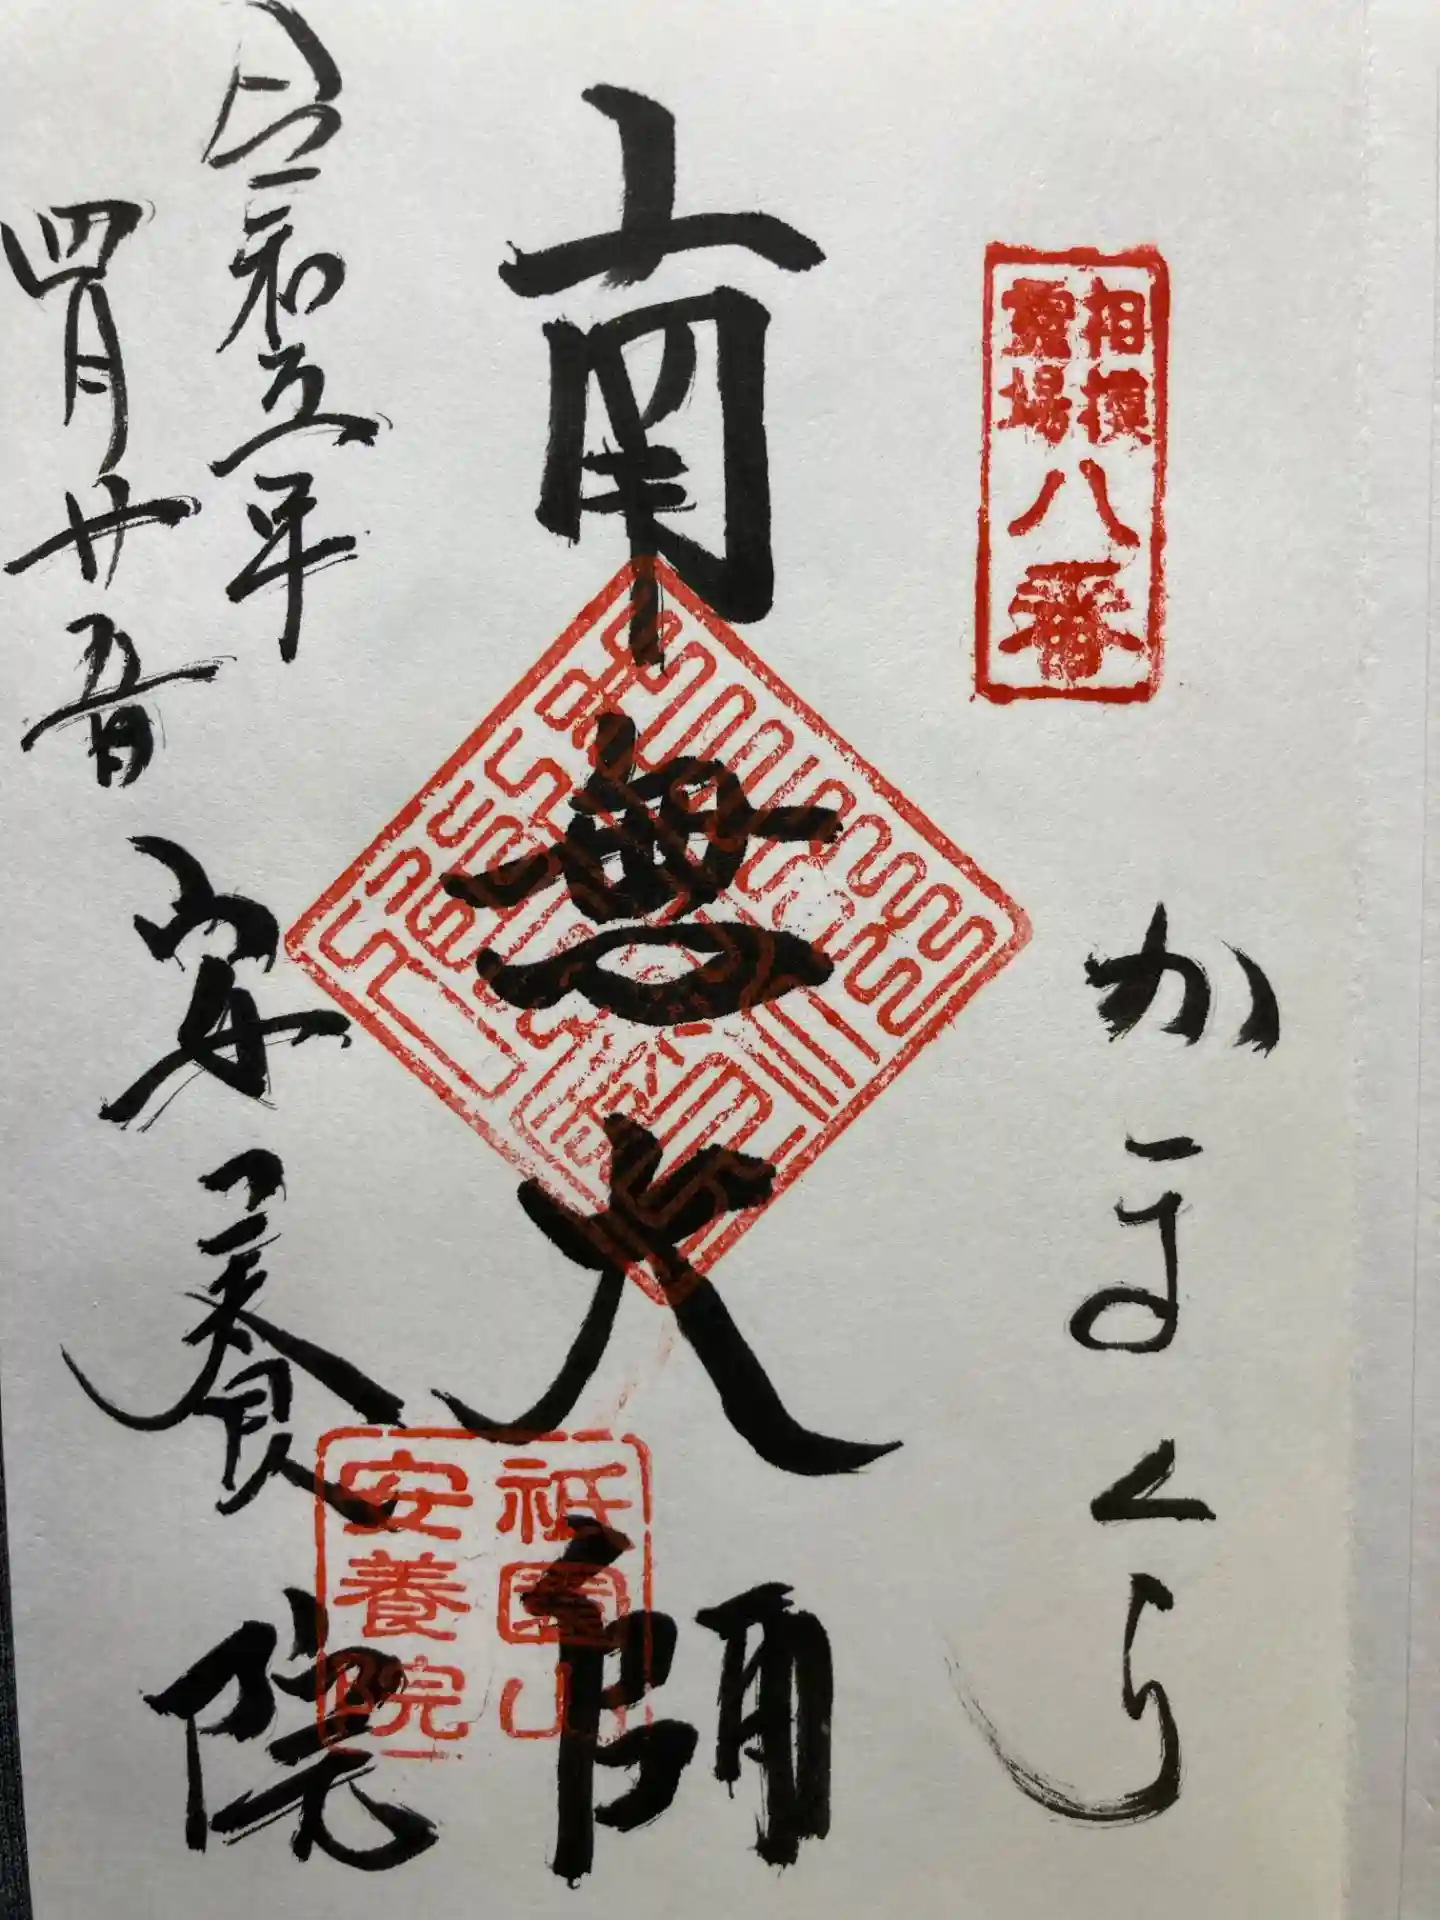 相模
霊場
八番
かまくら
南無大師
祇園山
安養院
令和五年
四月廿五日
安養院